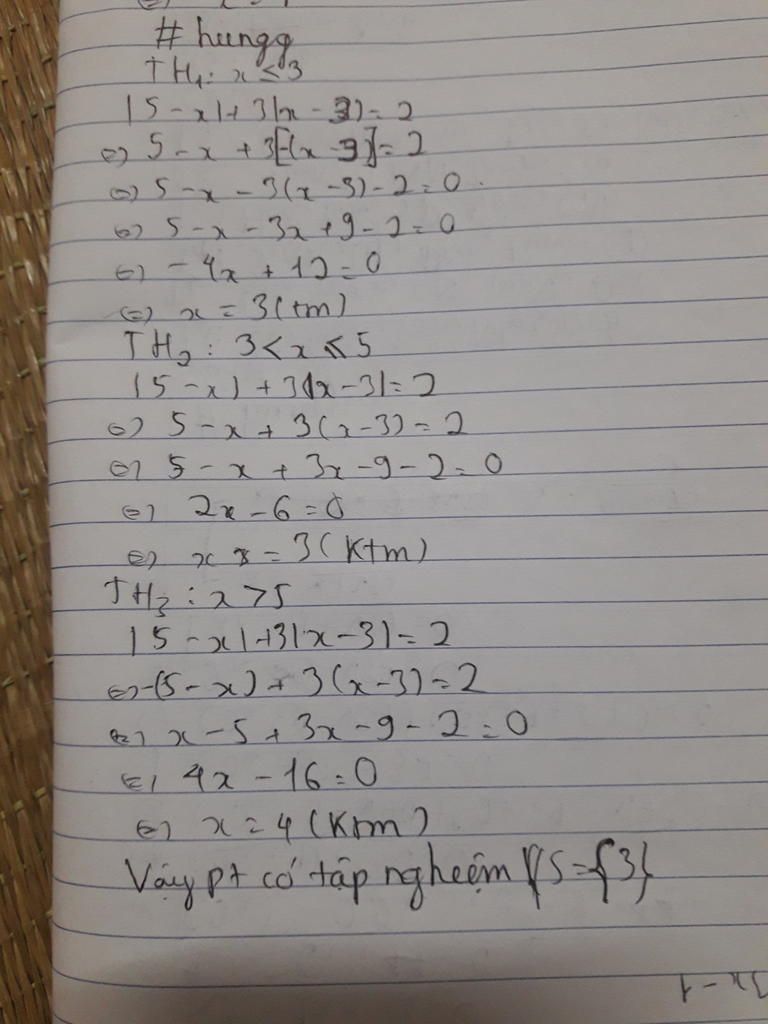 # hungg
TH₁: x ≤ 3
|5 - x| + 3|x - 3| = 2
<=> 5 - x + 3[-(x - 3)] = 2
<=> 5 - x - 3(x - 3) - 2 = 0
<=> 5 - x - 3x + 9 - 2 = 0
<=> - 4x + 12 = 0
<=> x = 3 (tm)
TH₂: 3 < x ≤ 5
|5 - x| + 3|x - 3| = 2
<=> 5 - x + 3(x - 3) = 2
<=> 5 - x + 3x - 9 - 2 = 0
<=> 2x - 6 = 0
<=> x = 3 (Ktm)
TH₃: x > 5
|5 - x| + 3|x - 3| = 2
<=> -(5 - x) + 3(x - 3) = 2
<=> x - 5 + 3x - 9 - 2 = 0
<=> 4x - 16 = 0
<=> x = 4 (Ktm)
Vậy pt có tập nghiệm S = {3}
3x - 1